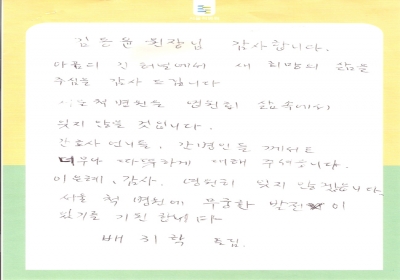 김은윤 원장님 감사합니다.
아픔의 긴 터널에서 새 희망의 삶을
주심을 감사 드립니다
척병원을 영원히 삶속에서
잊지 않을 것입니다.
간호사 언니들, 간병인들 께서도
너무나 따뜻하게 대해 주셨습니다.
이 은혜, 감사. 영원히 잊지 않겠습니다
서울 척 병원에 무궁한 발전이
있기를 기원 합니다
배 희 학 드림.